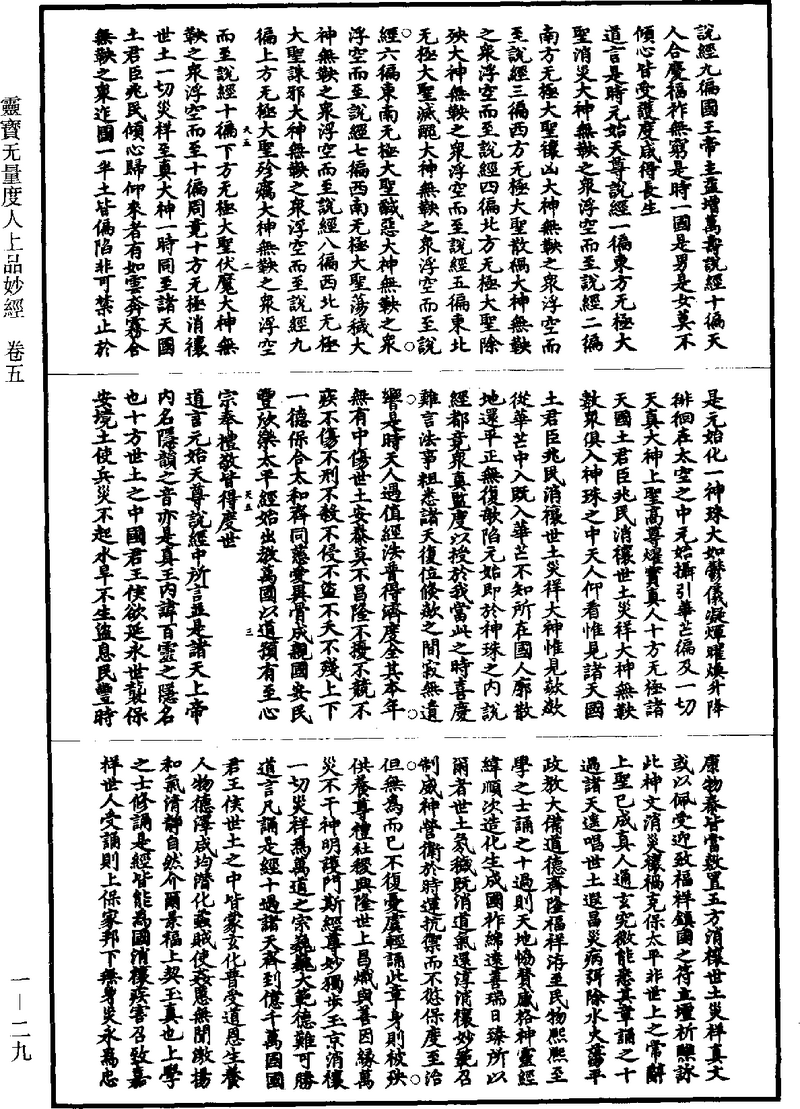 說經九徧國王帝主益增萬壽說經十徧天
人合慶福祚無窮是時一國是男是女莫不
傾心皆受護度咸得長生
道言是時元始天尊說經一徧東方无極大
聖消災大神無鞅之衆浮空而至說經二徧
南方无極大聖禳凶大神無鞅之衆浮空而
至說經三徧西方无極大聖散禍大神無鞅
之衆浮空而至說經四徧北方无極大聖除
殃大神無鞅之衆浮空而至說經五徧東北
无極大聖滅醜大神無鞅之衆浮空而至說
經六徧東南无極大聖馘惡大神無鞅之衆
浮空而至說經七徧西南无極大聖蕩穢大
神無鞅之衆浮空而至說經八徧西北无極
大聖誅邪大神無鞅之衆浮空而至說經九
徧上方无極大聖殄癘大神無鞅之衆浮空
天五 二
而至說經十徧下方无極大聖伏魔大神無
鞅之衆浮空而至十徧周竟十方无極消禳
世土一切災祥至真大神一時同至諸天國
土君臣兆民傾心歸仰來者有如雲奔霧合
無鞅之衆迮國一半土皆偏陷非可禁止於
是元始化一神珠大如鬱儀凝煇曜煥升降
徘徊在太空之中元始攝引華芒徧及一切
天真大神上聖高尊燿寶真人十方无極諸
天國土君臣兆民消禳世土災祥大神無鞅
數衆俱入神珠之中天人仰看惟見諸天國
土君臣兆民消禳世土災祥大神惟見歘歘
從華芒中入既入華芒不知所在國人廓散
地還平正無復欹陷元始即於神珠之內說
經都竟衆真監度以授於我當此之時喜慶
難言法事粗悉諸天復位倏歘之間寂無遺
響是時天人遇值經法普得濟度全其本年
無有中傷世土安泰莫不昌隆不擾不競不
疾不傷不刑不殺不侵不盜不夭不殘上下
一德保合太和齊同慈愛異骨成親國安民
豐欣樂太平經始出教萬國以道預有至心
天五 三
宗奉禮敬皆得度世
道言元始天尊說經中所言並是諸天上帝
內名隱韻之音亦是真王內諱百靈之隱名
也十方世土之中國君王侯欲延永世襲保
安境土使兵災不起水旱不生盜息民豐時
康物泰皆當敷置五方消禳世土災祥真文
或以佩受迎致福祥鎮國之符立壇祈醮詠
此神文消災禳禍克保太平非世上之常辭
上聖已成真人通玄究微能悉其章誦之十
過諸天遠唱世土遐昌災病弭除水火蕩平
政教大備道德齊隆福祥洊至民物熙熙至
學之士誦之十過則天地恊贊威格神靈經
緯順次造化生成國祚綿遠善瑞日臻所以
爾者世土氛穢既消道氣還淳消禳妙範召
制威神營衛於時運抗禦而不挺保度至治
但無為而已不復憂虞輕誦此章身則被殃
供養尊禮社稷興隆世上昌熾與善因緣萬
災不干神明護門斯經尊妙獨步玉京消禳
一切災祥為萬道之宗巍巍大範德難可勝
道言凡誦是經十過諸天齊到億千萬國國
君王侯世土之中皆蒙玄化普受道恩生養
人物德澤咸均潛化蟊賊使姦慝無聞激揚
和氣清靜自然介爾景福上契玉真也上學
之士修誦是經皆能為國消禳疾害召致嘉
祥世人受誦則上保家邦下無身災永為忠
靈寶无量度人上品妙經 卷五
一—二九